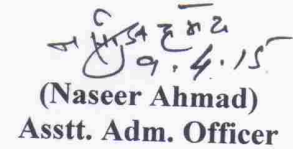 9.4.15
(Naseer Ahmad)
Asstt. Adm. Officer